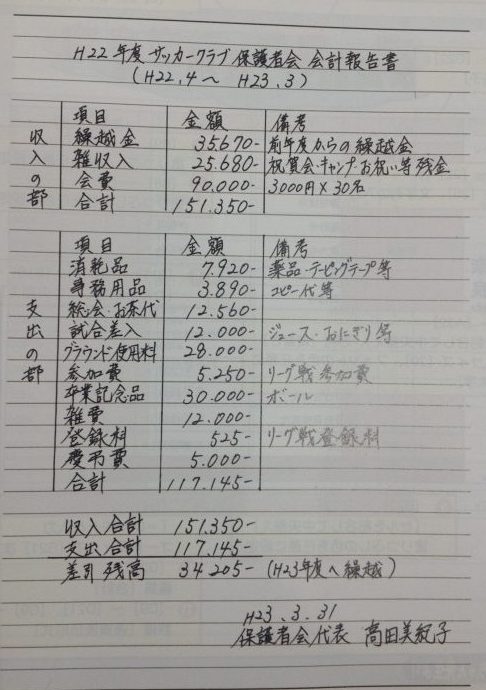 H22年度 サッカークラブ 保護者会 会計報告書
(H22.4～ H23.3)
収入の部
項目 金額 備考
繰越金 35.670- 前年度からの繰越金
雑収入 25.680- 祝賀会・キャンプ・お祝い等残金
会費 90.000- 3000円×30名
合計 151.350-
支出の部
項目 金額 備考
消耗品 7.920- 薬品・テーピングテープ等
事務用品 3.890- コピー代等
総会・お茶代 12.560-
試合差入 12.000- ジュース・おにぎり等
グラウンド使用料 28.000-
参加費 5.250- リーグ戦参加費
卒業記念品 30.000- ボール
雑費 12.000-
登録料 525- リーグ戦登録料
慶弔費 5.000-
合計 117.145-
収入合計 151.350-
支出合計 117.145-
差引残高 34.205- (H23年度へ繰越)
H23.3.31
保護者会代表 高田美紀子